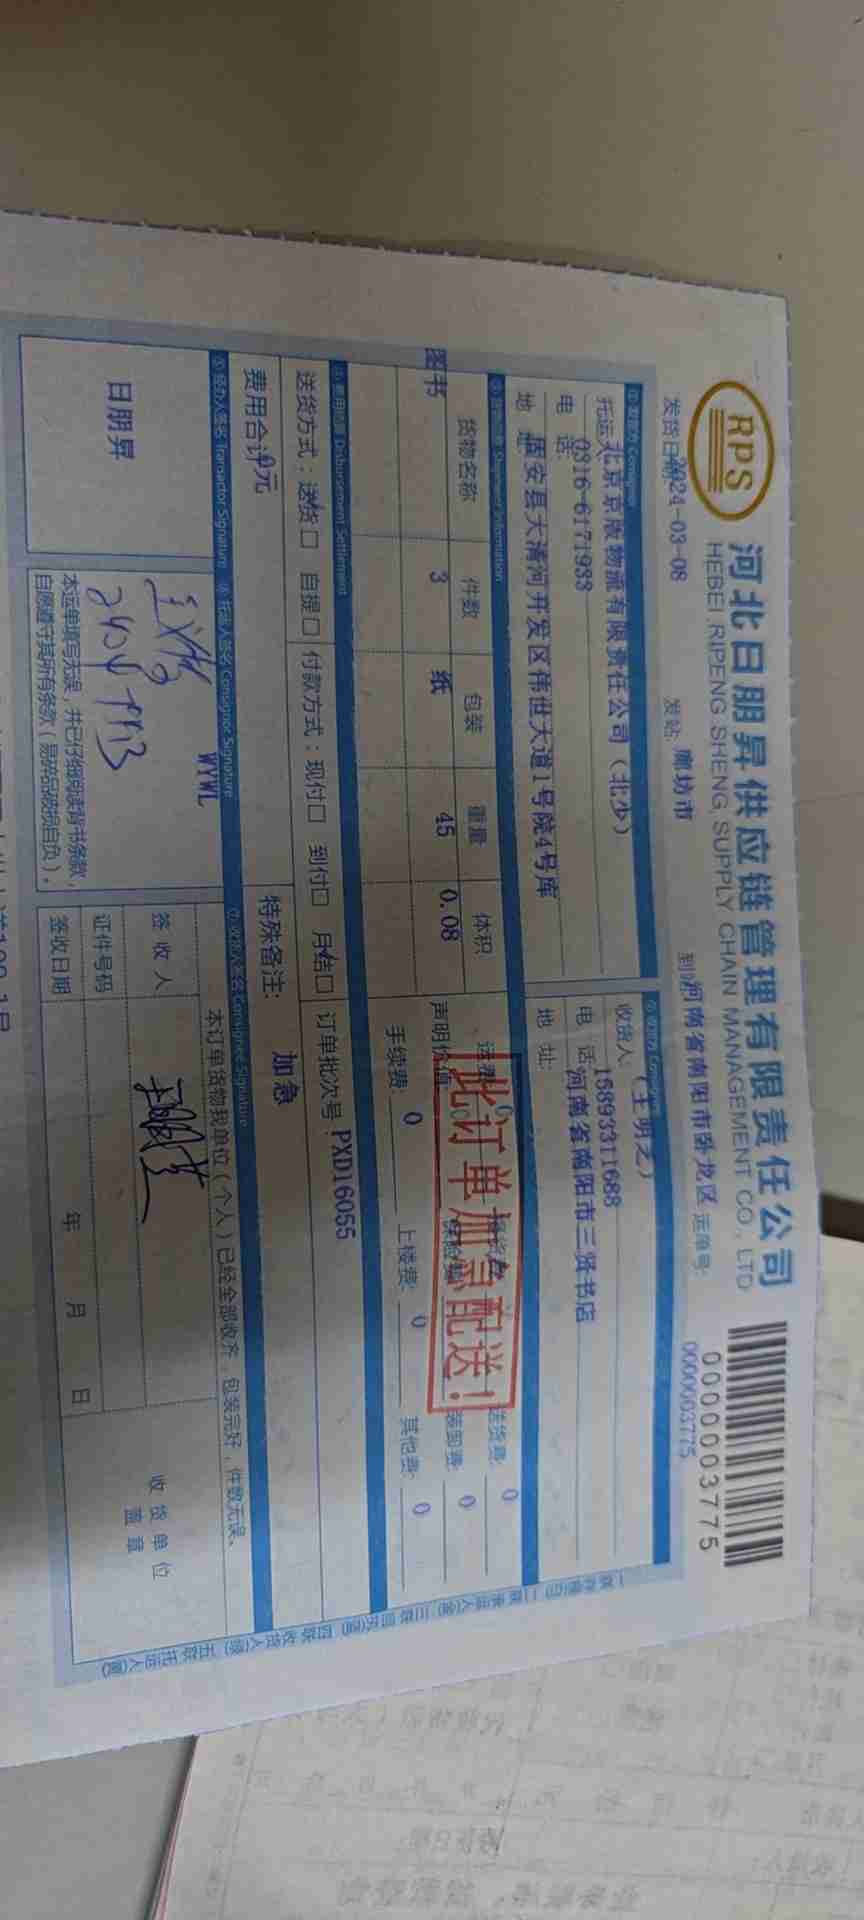 RPS
河北日朋昇供应链管理有限责任公司
HEBEI RIPENG SHENG SUPPLY CHAIN MANAGEMENT CO., LTD
0000003775
发货日期 2024-03-08 发站: 廊坊市 到站: 河南省南阳市卧龙区 运单号: 0000003775
① 发货方 Consignor
托运人: 北京京版物流有限责任公司（北少）
电 话: 0316-6171933
地 址: 固安县大清河开发区伟世大道1号院4号库
收货人: （王明之）
电 话: 15893311688
地 址: 河南省南阳市三贤书店
③ 货物信息 Shipment Information
货物名称 件数 包装 重量 体积
图书 3 纸 45 0.08
运费: 0 送货费: 0
声明价值: 保险费: 装卸费: 0
手续费: 0 上楼费: 0 其他费: 0
此订单加急配送!
④ 费用结算 Disbursement Settlement
送货方式: 送货□ 自提□ 付款方式: 现付□ 到付□ 月结□ 订单批次号: PXD16055
费用合计: 0元 特殊备注: 加急
⑤ 经办人签名 Transactor Signature ⑥ 托运人签名 Consignor Signature ⑦ 收货人签名 Consignee Signature
日朋昇
WYWL
本运单填写无误，并已仔细阅读背书条款，
自愿遵守其所有条款（易碎品破损自负）。
本订单货物我单位（个人）已经全部收齐，包装完好，件数无误。
签 收 人
证件号码
签收日期 年 月 日
收货单位
盖 章